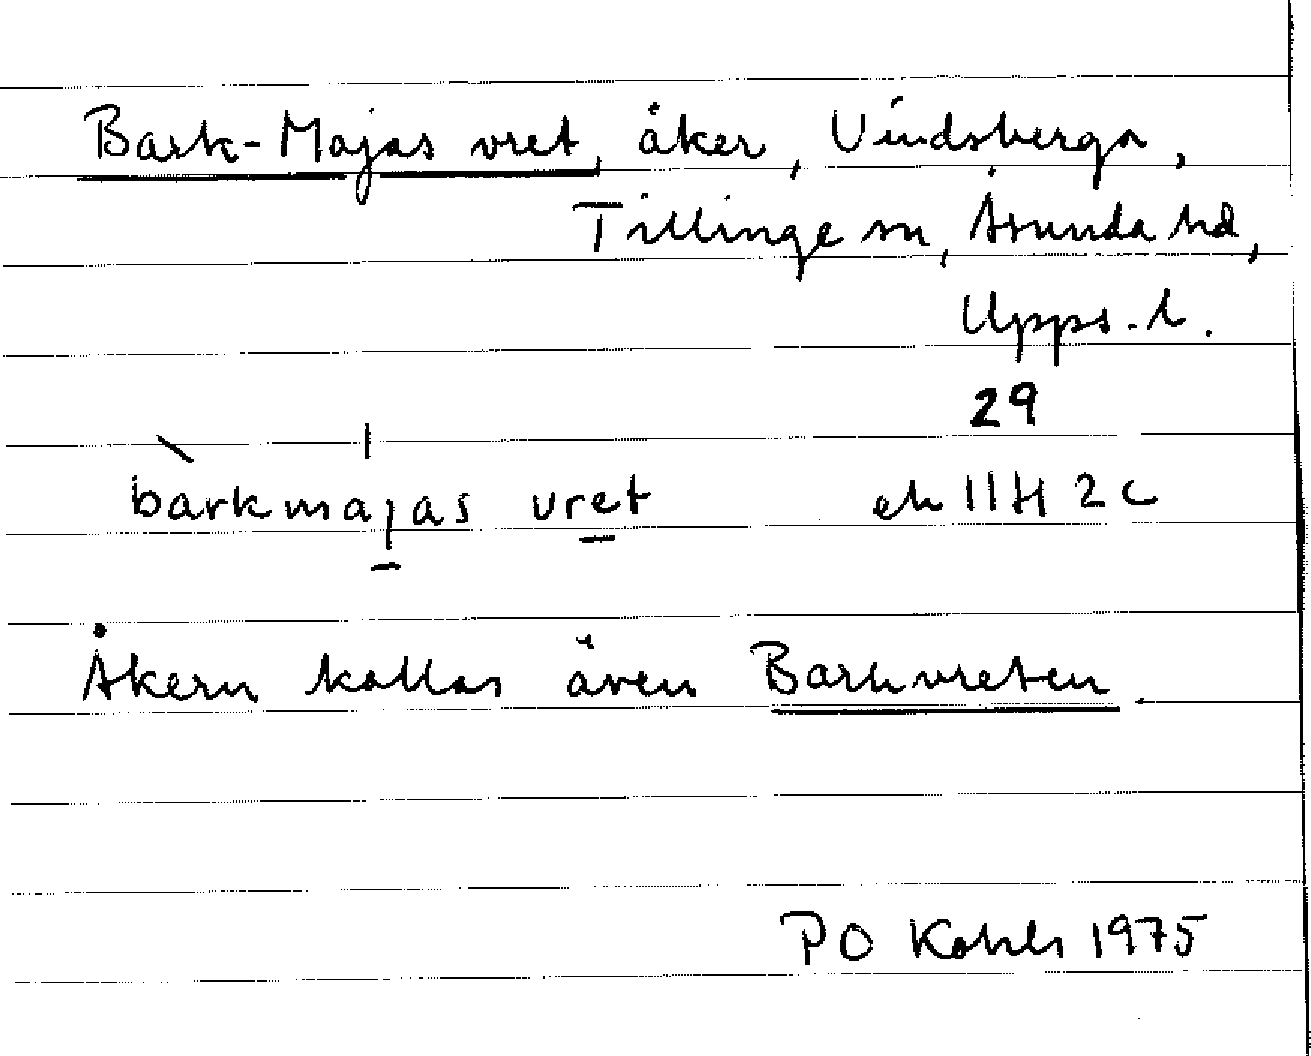 Bark-Majas vret, åker, Vindsberga,
Tillinge sn, Åsunda hd,
Upps. l.
29
barkmajas vret ek 11H 2c
Åkern kallas även Barkvreten.
PO Kohls 1975